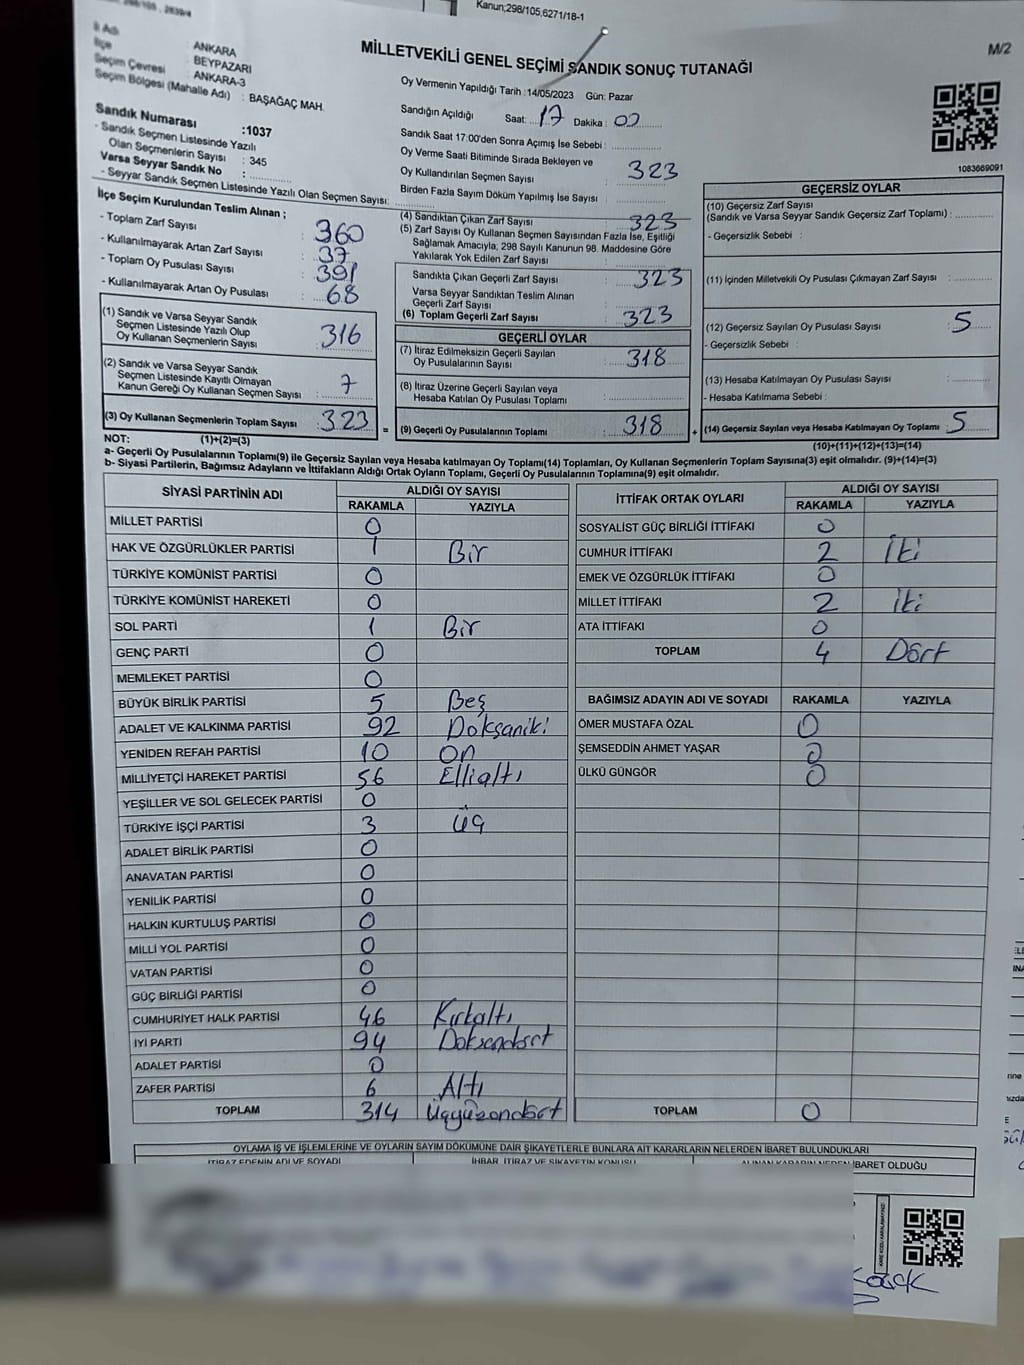 Kanun;298/105,6271/18-1
M/2
MİLLETVEKİLİ GENEL SEÇİMİ SANDIK SONUÇ TUTANAĞI
İl Adı : ANKARA
İlçe : BEYPAZARI
Seçim Çevresi : ANKARA-3
Seçim Bölgesi (Mahalle Adı) : BAŞAĞAÇ MAH.
Sandık Numarası :1037
- Sandık Seçmen Listesinde Yazılı
Olan Seçmenlerin Sayısı : 345
Varsa Seyyar Sandık No :
- Seyyar Sandık Seçmen Listesinde Yazılı Olan Seçmen Sayısı:
Oy Vermenin Yapıldığı Tarih :14/05/2023 Gün: Pazar
Sandığın Açıldığı Saat: 17 Dakika : 00
Sandık Saat 17:00'den Sonra Açımış İse Sebebi :
Oy Verme Saati Bitiminde Sırada Bekleyen ve
Oy Kullandırılan Seçmen Sayısı : 323
Birden Fazla Sayım Döküm Yapılmış İse Sayısı :
1083669091
İlçe Seçim Kurulundan Teslim Alınan ;
- Toplam Zarf Sayısı : 360
- Kullanılmayarak Artan Zarf Sayısı : 37
- Toplam Oy Pusulası Sayısı : 391
- Kullanılmayarak Artan Oy Pusulası : 68
(1) Sandık ve Varsa Seyyar Sandık
Seçmen Listesinde Yazılı Olup
Oy Kullanan Seçmenlerin Sayısı : 316
(2) Sandık ve Varsa Seyyar Sandık
Seçmen Listesinde Kayıtlı Olmayan
Kanun Gereği Oy Kullanan Seçmen Sayısı : 7
(3) Oy Kullanan Seçmenlerin Toplam Sayısı : 323 =
(4) Sandıktan Çıkan Zarf Sayısı : 323
(5) Zarf Sayısı Oy Kullanan Seçmen Sayısından Fazla İse, Eşitliği
Sağlamak Amacıyla; 298 Sayılı Kanunun 98. Maddesine Göre
Yakılarak Yok Edilen Zarf Sayısı :
Sandıkta Çıkan Geçerli Zarf Sayısı : 323
Varsa Seyyar Sandıktan Teslim Alınan
Geçerli Zarf Sayısı :
(6) Toplam Geçerli Zarf Sayısı : 323
GEÇERLİ OYLAR
(7) İtiraz Edilmeksizin Geçerli Sayılan
Oy Pusulalarının Sayısı : 318
(8) İtiraz Üzerine Geçerli Sayılan veya
Hesaba Katılan Oy Pusulası Toplamı :
(9) Geçerli Oy Pusulalarının Toplamı : 318 +
GEÇERSİZ OYLAR
(10) Geçersiz Zarf Sayısı
(Sandık ve Varsa Seyyar Sandık Geçersiz Zarf Toplamı) :
- Geçersizlik Sebebi :
(11) İçinden Milletvekili Oy Pusulası Çıkmayan Zarf Sayısı :
(12) Geçersiz Sayılan Oy Pusulası Sayısı : 5
- Geçersizlik Sebebi :
(13) Hesaba Katılmayan Oy Pusulası Sayısı :
- Hesaba Katılmama Sebebi :
(14) Geçersiz Sayılan veya Hesaba Katılmayan Oy Toplamı : 5
NOT: (1)+(2)=(3) (10)+(11)+(12)+(13)=(14)
a- Geçerli Oy Pusulalarının Toplamı(9) ile Geçersiz Sayılan veya Hesaba katılmayan Oy Toplamı(14) Toplamları, Oy Kullanan Seçmenlerin Toplam Sayısına(3) eşit olmalıdır. (9)+(14)=(3)
b- Siyasi Partilerin, Bağımsız Adayların ve İttifakların Aldığı Ortak Oyların Toplamı, Geçerli Oy Pusulalarının Toplamına(9) eşit olmalıdır.
SİYASİ PARTİNİN ADI ALDIĞI OY SAYISI
RAKAMLA YAZIYLA
MİLLET PARTİSİ 0
HAK VE ÖZGÜRLÜKLER PARTİSİ 1 Bir
TÜRKİYE KOMÜNİST PARTİSİ 0
TÜRKİYE KOMÜNİST HAREKETİ 0
SOL PARTİ 1 Bir
GENÇ PARTİ 0
MEMLEKET PARTİSİ 0
BÜYÜK BİRLİK PARTİSİ 5 Beş
ADALET VE KALKINMA PARTİSİ 92 Doksaniki
YENİDEN REFAH PARTİSİ 10 on
MİLLİYETÇİ HAREKET PARTİSİ 56 Ellialtı
YEŞİLLER VE SOL GELECEK PARTİSİ 0
TÜRKİYE İŞÇİ PARTİSİ 3 üç
ADALET BİRLİK PARTİSİ 0
ANAVATAN PARTİSİ 0
YENİLİK PARTİSİ 0
HALKIN KURTULUŞ PARTİSİ 0
MİLLİ YOL PARTİSİ 0
VATAN PARTİSİ 0
GÜÇ BİRLİĞİ PARTİSİ 0
CUMHURİYET HALK PARTİSİ 46 Kırkaltı
İYİ PARTİ 94 Doksandört
ADALET PARTİSİ 0
ZAFER PARTİSİ 6 Altı
TOPLAM 314 Üçyüzondört
İTTİFAK ORTAK OYLARI ALDIĞI OY SAYISI
RAKAMLA YAZIYLA
SOSYALİST GÜÇ BİRLİĞİ İTTİFAKI 0
CUMHUR İTTİFAKI 2 İki
EMEK VE ÖZGÜRLÜK İTTİFAKI 0
MİLLET İTTİFAKI 2 iki
ATA İTTİFAKI 0
TOPLAM 4 Dört
BAĞIMSIZ ADAYIN ADI VE SOYADI RAKAMLA YAZIYLA
ÖMER MUSTAFA ÖZAL 0
ŞEMSEDDİN AHMET YAŞAR 0
ÜLKÜ GÜNGÖR 0
TOPLAM 0
OYLAMA İŞ VE İŞLEMLERİNE VE OYLARIN SAYIM DÖKÜMÜNE DAİR ŞİKAYETLERLE BUNLARA AİT KARARLARIN NELERDEN İBARET BULUNDUKLARI
İTİRAZ EDENİN ADI VE SOYADI İHBAR, İTİRAZ VE ŞİKAYETİN KONUSU ALINAN KARARIN NEDEN İBARET OLDUĞU